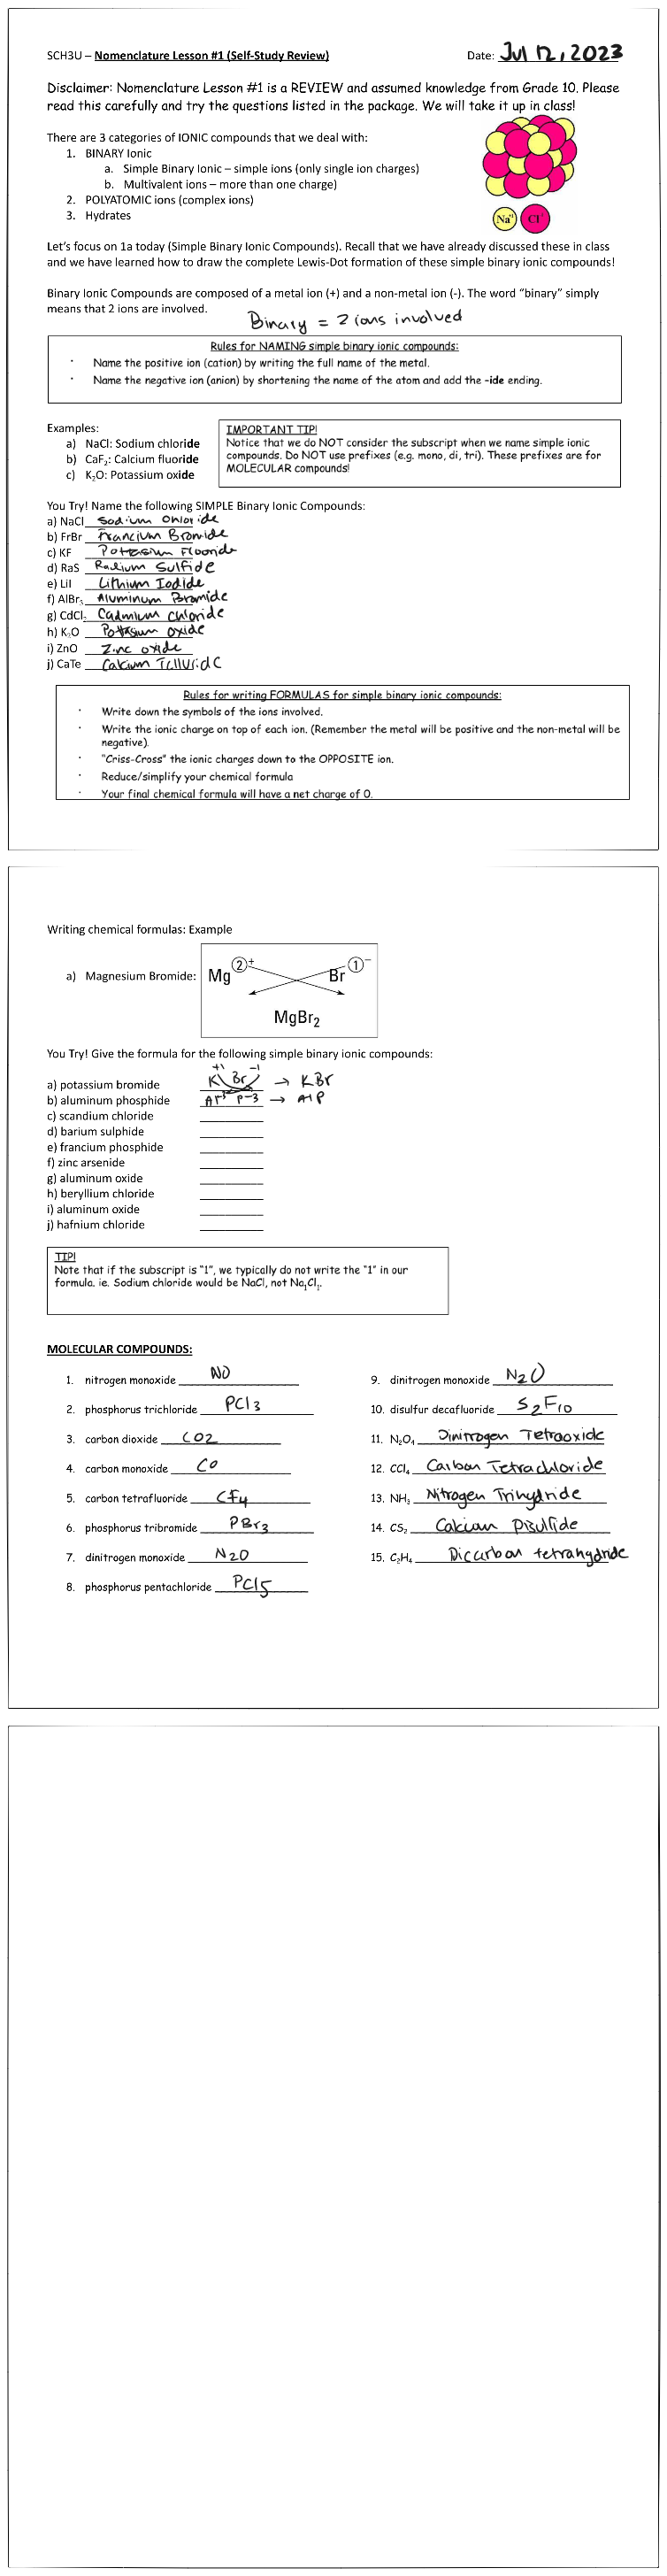 SCH3U – Nomenclature Lesson #1 (Self-Study Review) Date: Jul 12, 2023
Disclaimer: Nomenclature Lesson #1 is a REVIEW and assumed knowledge from Grade 10. Please
read this carefully and try the questions listed in the package. We will take it up in class!
There are 3 categories of IONIC compounds that we deal with:
1. BINARY Ionic
a. Simple Binary Ionic – simple ions (only single ion charges)
b. Multivalent ions – more than one charge)
2. POLYATOMIC ions (complex ions)
3. Hydrates
Na⁺ Cl⁻
Let's focus on 1a today (Simple Binary Ionic Compounds). Recall that we have already discussed these in class
and we have learned how to draw the complete Lewis-Dot formation of these simple binary ionic compounds!
Binary Ionic Compounds are composed of a metal ion (+) and a non-metal ion (-). The word "binary" simply
means that 2 ions are involved.
Binary = 2 ions involved
Rules for NAMING simple binary ionic compounds:
· Name the positive ion (cation) by writing the full name of the metal.
· Name the negative ion (anion) by shortening the name of the atom and add the -ide ending.
Examples:
a) NaCl: Sodium chloride
b) CaF₂: Calcium fluoride
c) K₂O: Potassium oxide
IMPORTANT TIP!
Notice that we do NOT consider the subscript when we name simple ionic
compounds. Do NOT use prefixes (e.g. mono, di, tri). These prefixes are for
MOLECULAR compounds!
You Try! Name the following SIMPLE Binary Ionic Compounds:
a) NaCl Sodium Chloride
b) FrBr Francium Bromide
c) KF Potassium Fluoride
d) RaS Radium Sulfide
e) LiI Lithium Iodide
f) AlBr₃ Aluminum Bromide
g) CdCl₂ Cadmium Chloride
h) K₂O Potassium Oxide
i) ZnO Zinc oxide
j) CaTe Calcium Telluride
Rules for writing FORMULAS for simple binary ionic compounds:
· Write down the symbols of the ions involved.
· Write the ionic charge on top of each ion. (Remember the metal will be positive and the non-metal will be
negative).
· "Criss-Cross" the ionic charges down to the OPPOSITE ion.
· Reduce/simplify your chemical formula
· Your final chemical formula will have a net charge of 0.
Writing chemical formulas: Example
a) Magnesium Bromide: Mg 2+ Br 1−
MgBr₂
You Try! Give the formula for the following simple binary ionic compounds:
a) potassium bromide K+1 Br-1 → KBr
b) aluminum phosphide Al+3 P-3 → AlP
c) scandium chloride
d) barium sulphide
e) francium phosphide
f) zinc arsenide
g) aluminum oxide
h) beryllium chloride
i) aluminum oxide
j) hafnium chloride
TIP!
Note that if the subscript is "1", we typically do not write the "1" in our
formula. ie. Sodium chloride would be NaCl, not Na₁Cl₁.
MOLECULAR COMPOUNDS:
1. nitrogen monoxide NO
2. phosphorus trichloride PCl3
3. carbon dioxide CO2
4. carbon monoxide CO
5. carbon tetrafluoride CF4
6. phosphorus tribromide PBr3
7. dinitrogen monoxide N2O
8. phosphorus pentachloride PCl5
9. dinitrogen monoxide N2O
10. disulfur decafluoride S2F10
11. N₂O₄ Dinitrogen Tetraoxide
12. CCl₄ Carbon Tetrachloride
13. NH₃ Nitrogen Trihydride
14. CS₂ Calcium Disulfide
15. C₂H₄ Dicarbon tetrahydride